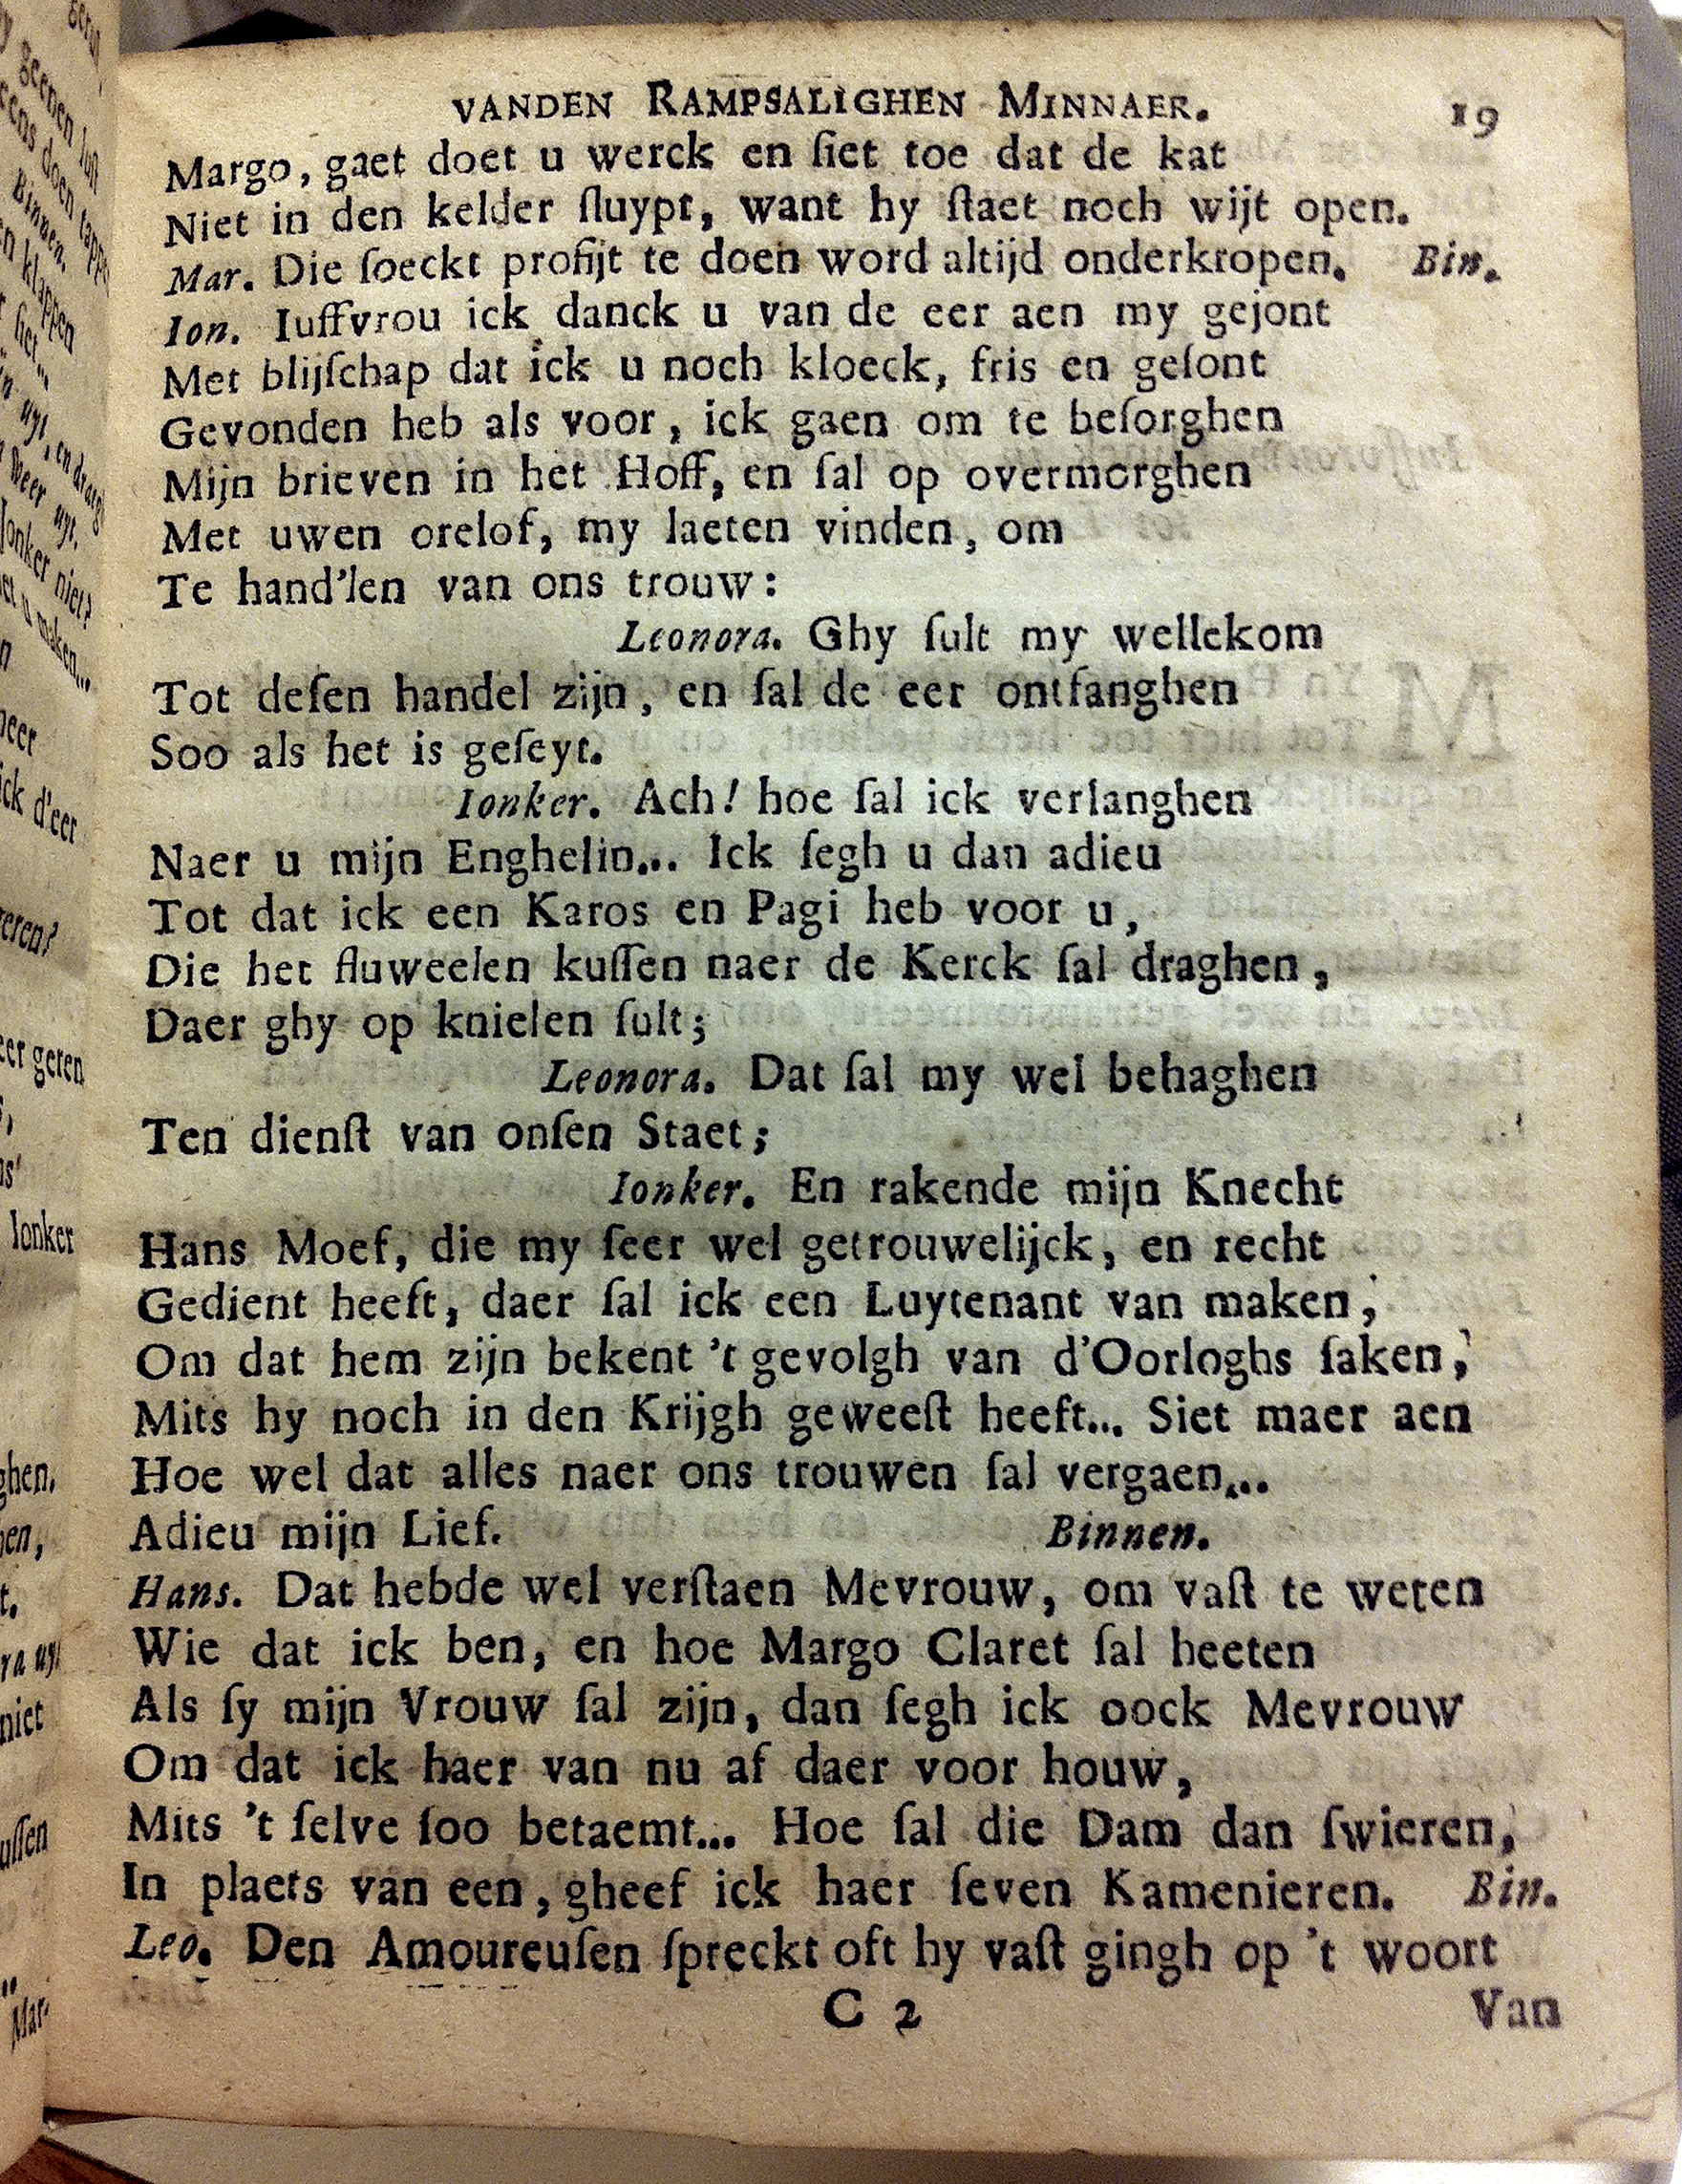 VANDEN RAMPSALIGHEN MINNAER. 19
Margo, gaet doet u werck en ſiet toe dat de kat
Niet in den kelder ſluypt, want hy ſtaet noch wijt open.
Mar. Die ſoeckt profijt te doen word altijd onderkropen. Bin.
Ion. Iuffvrou ick danck u van de eer aen my gejont
Met blijſchap dat ick u noch kloeck, fris en geſont
Gevonden heb als voor, ick gaen om te beſorghen
Mijn brieven in het Hoff, en ſal op overmorghen
Met uwen orelof, my laeten vinden, om
Te hand'len van ons trouw:
Leonora. Ghy ſult my wellekom
Tot deſen handel zijn, en ſal de eer ontfanghen
Soo als het is geſeyt.
Ionker. Ach! hoe ſal ick verlanghen
Naer u mijn Enghelin... Ick ſegh u dan adieu
Tot dat ick een Karos en Pagi heb voor u,
Die het fluweelen kuſſen naer de Kerck ſal draghen,
Daer ghy op knielen ſult;
Leonora. Dat ſal my wel behaghen
Ten dienſt van onſen Staet;
Ionker. En rakende mijn Knecht
Hans Moef, die my ſeer wel getrouwelijck, en recht
Gedient heeft, daer ſal ick een Luytenant van maken,
Om dat hem zijn bekent 't gevolgh van d'Oorloghs ſaken,
Mits hy noch in den Krijgh geweeſt heeft... Siet maer aen
Hoe wel dat alles naer ons trouwen ſal vergaen...
Adieu mijn Lief. Binnen.
Hans. Dat hebde wel verſtaen Mevrouw, om vaſt te weten
Wie dat ick ben, en hoe Margo Claret ſal heeten
Als ſy mijn Vrouw ſal zijn, dan ſegh ick oock Mevrouw
Om dat ick haer van nu af daer voor houw,
Mits 't ſelve ſoo betaemt... Hoe ſal die Dam dan ſwieren,
In plaets van een, gheef ick haer ſeven Kamenieren. Bin.
Leo. Den Amoureuſen ſpreckt oft hy vaſt gingh op 't woort
C 2 Van